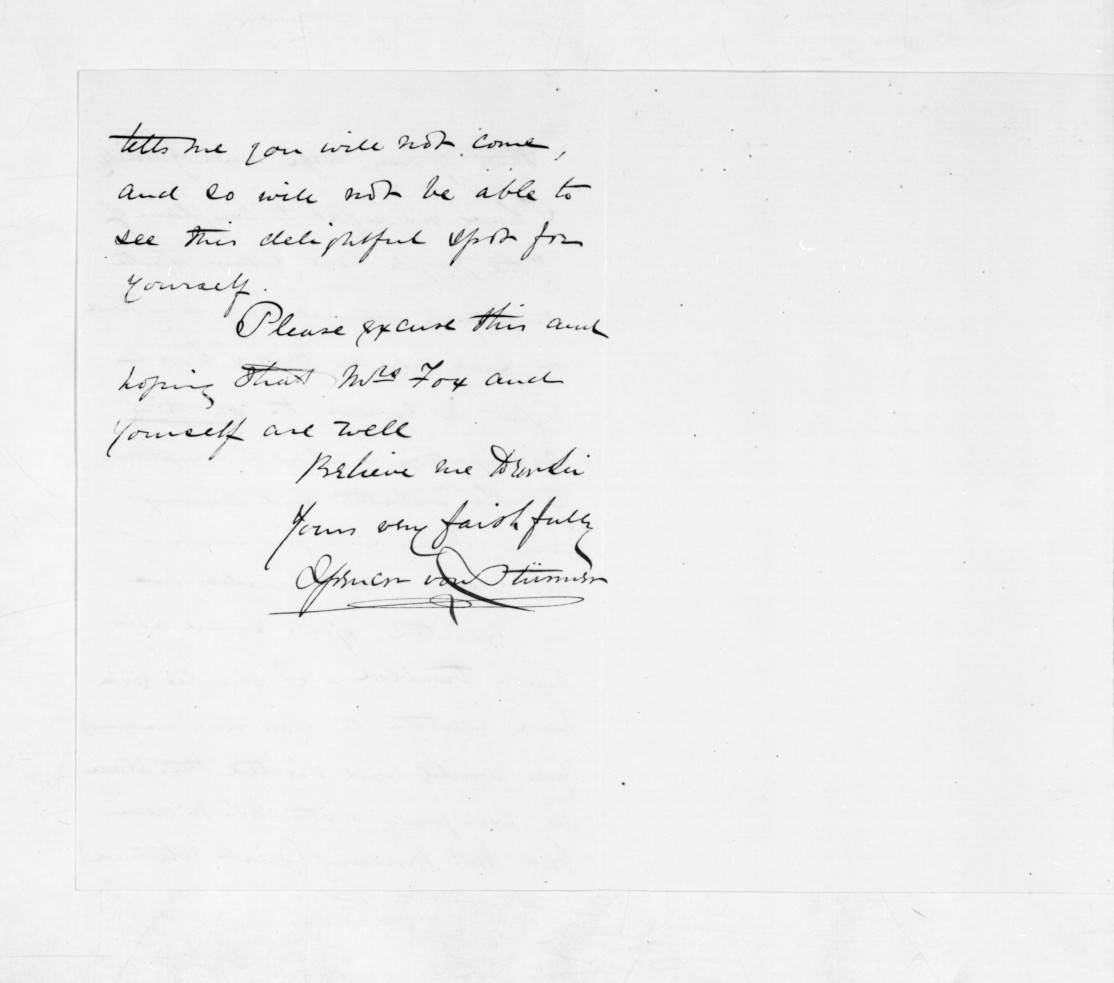 tells me you will not come,
and so will not be able to
see this delightful spot for
yourself.
Please excuse this and
hoping that Mrs Fox and
yourself are well
Believe me Dear Sir
Yours very faithfully
Spencer von Stürmer